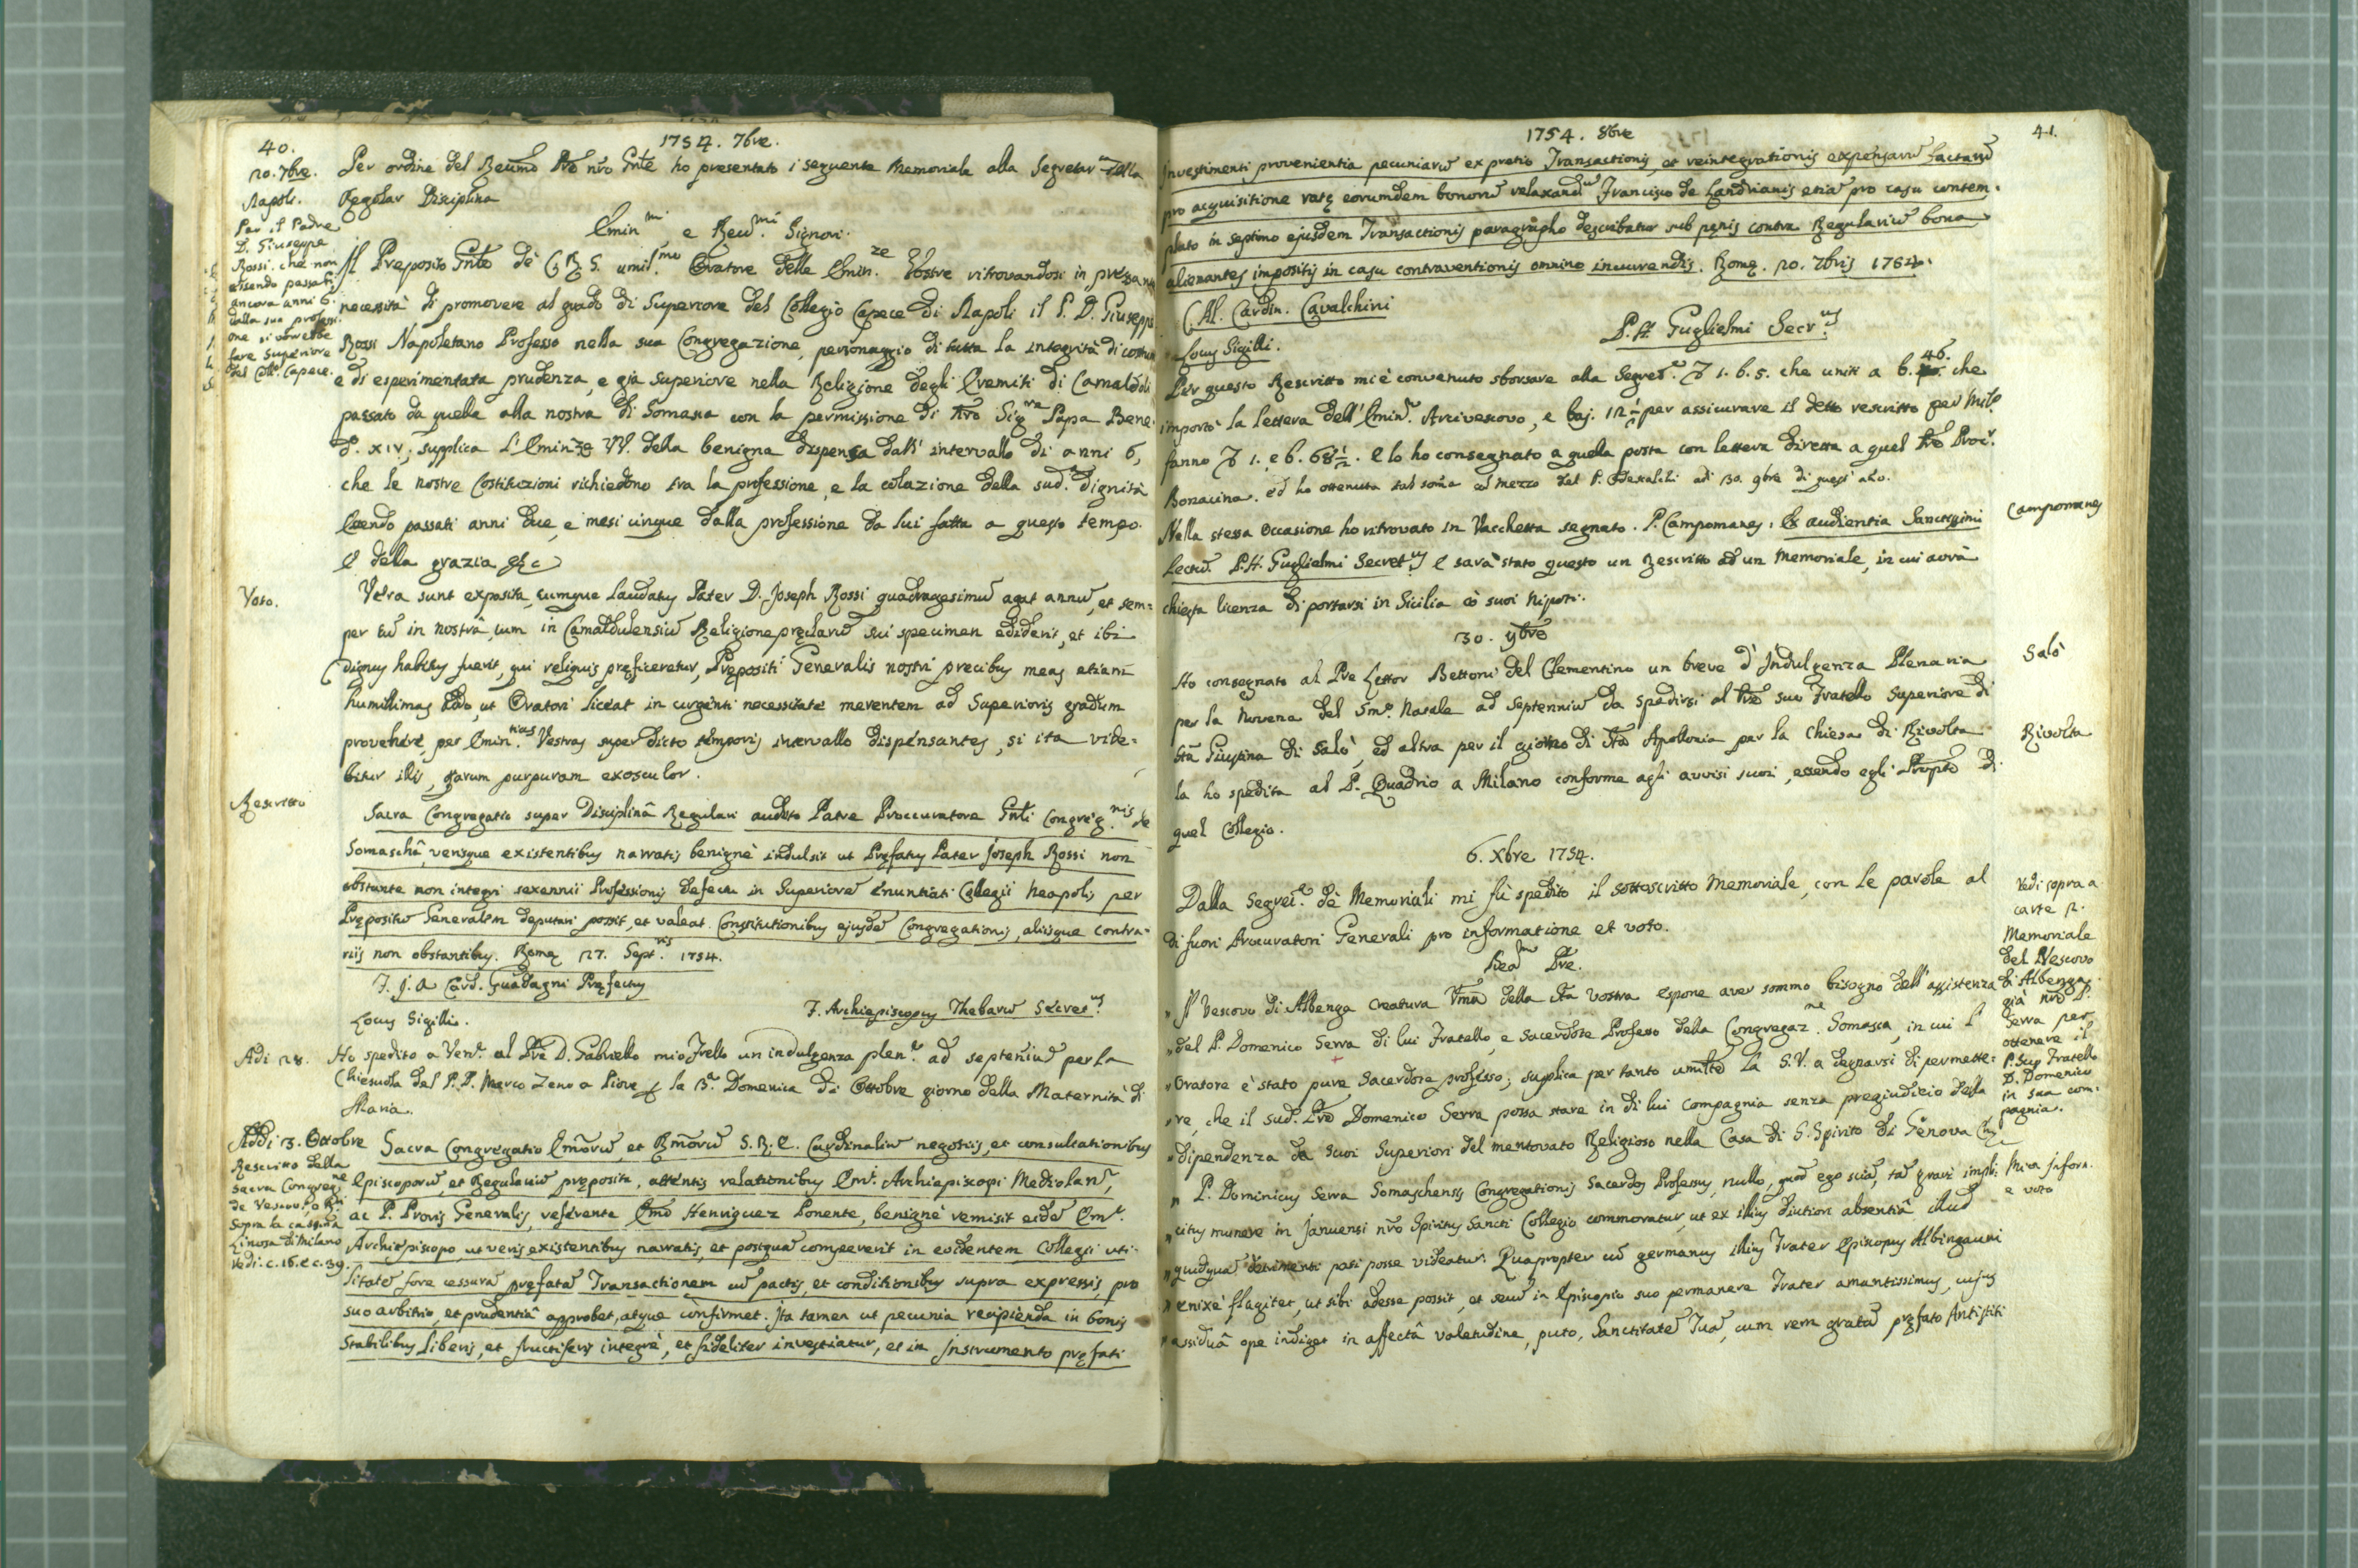 40.
1754. 7bre.
20. 7bre. Per ordine del Reumo Pre nro Gnle ho presentato i seguente Memoriale alla Segretar della
Napoli. Regolar Disciplina
Per il Padre
D. Giuseppe
Rossi. che non
essendo passati
ancora anni 6.
dalla sua professi-
one si vorrebbe
fare Superiore
del Coll. Capece.
Emin.mi e Reu.mi Signori.
Il Preposito Gnle de C. R. S. umil.mo Oratore delle Emin.ze Vostre ritrovandosi in
necessità di promovere al grado di Superiore del Collegio Capece di Napoli il P. D. Giusepp
Rossi Napoletano Professo nella sua Congregazione, personaggio di tutta la integrità di
e di esperimentata prudenza, e già superiore nella Religione degli Eremiti di Camaldoli
passato da quella alla nostra di Somasca con la permissione di Nro Sig.re Papa Bene-
d. XIV, supplica L'Emin.ze VV. della benigna dispensa dall' intervallo di anni 6,
che le nostre Costituzioni richiedono tra la professione, e la colazione della sud.a dignità
Essendo passati anni due, e mesi cinque dalla professione da lui fatta a questo tempo.
E della grazia &c
Voto. Vera sunt exposita, cumque laudatus Pater D. Joseph Rossi quadragesimũ agat annũ, et sem-
per tũ in nostrâ, cum in Camaldulensiũ Religione pręclarũ sui specimen ediderit, et ibi
Dignus habitus fuerit, qui reliquis pręficeretur, Prępositi Generalis nostri precibus meas etiam
humillimas addo, ut Oratori liceat in urgenti necessitate merentem ad Superioris gradum
provehere, per Emin.tias Vestras super dicto temporis intervallo dispensantes, si ita vide-
bitur illis, quarum purpuram exosculor.
Rescritto
Sacra Congregatio super Disciplinâ Regulari audito Patre Proccuratore Gnli Congreg.nis de
Somaschâ, verisque existentibus narratis benignè indulsit ut Pręfatus Pater Joseph Rossi non
obstante non integri sexennii Professionis defectu in Superiorẽ enuntiati Collegii Neapolis per
Prępositũ Generalem deputari possit, et valeat. Constitutionibus ejusdẽ Congregationis, aliisque contra-
riis non obstantibus. Romę 27. Sept.ris 1754.
F. J. A Card. Guadagni Pręfectus
F. Archiepiscopus Thebarũ Secret.us
Locus Sigilli.
Adi 28. Ho spedito a Ven.a al Pre D. Gabriello mio Frello un indulgenza plen.a ad septeniũ per la
Chiesuola del P. P. Marco Zeno a Piove p la 3.a Domenica di Ottobre giorno della Maternità di
Maria.
Addi 3. Ottobre Sacra Congregatio Emorũ et Rmorũ S. R. E. Cardinaliũ negotiis, et consultationibus
Rescritto della
Sacra Congreg.ne
de Vescovi, e R.ri
Sopra la cassina
Linosa di Milano
Vedi. c. 16. e c. 39.
Episcoporũ, et Regulariũ pręposita, attentis relationibus Emi. Archiepiscopi Mediolan.,
ac P. Pro.ris Generalis, referente Emo Henriquez Ponente, benignè remisit eidẽ Em.o
Archiepiscopo, ut veris existentibus narratis, et postquã compererit in evidentem Collegii uti-
litatẽ fore cessurã pręfatã Transactionem cũ pactis, et conditionibus supra expressis, pro
suo arbitrio, et prudentiâ approbet, atque confirmet. Ita tamen ut pecunia recipienda in bonis
Stabilibus liberis, et fructiferis integrè, et fideliter investiatur, et in Instrumento pręfati
1754. 8bre
41.
Investimenti provenientia pecuniarũ ex pretio Transactionis, et reintegrationis expensarũ factarũ
pro acquisitione ratę eorumdem bonorũ relaxand Francisco de Landrianis etiã pro casu contem-
plato in septimo ejusdem Transactionis paragrapho describatur sub pęnis contra Regulariũ bona
alienantes impositis in casu contraventionis omnino incurrendis. Romę. 20. 7bris 1754.
C. Al. Cardin. Cavalchini
P. H. Guglielmi Secr.us
Locus Sigilli.
Per questo Rescritto mi è convenuto sborsare alla Segret.a 1. b. 5. che uniti a b. 46. che
importò la lettera dell' Emin.o Arcivescovo, e baj. 12 1/2 per assicurare il detto rescritto per Mil.o
fanno 1. e b. 68 1/2. E lo ho consegnato a quella posta con lettera diretta a quel Pre Proc.r
Bonacina. ed ho ottenuta tal soma col mezzo del P. Odescalchi adi 30. 9bre di quest' año.
Nella stessa occasione ho ritrovato in Vacchetta segnato. P. Campomanes: Ex audientia Sanctissimi
Campomanes
Lectũ. P. H. Guglielmi Secret.us E sarà stato questo un Rescritto ad un Memoriale, in cui avrà
chiesta licenza di portarsi in Sicilia cò suoi Nipoti.
30. 9bre
Ho consegnato al Pre Lettor Bettoni del Clementino un breve d'Indulgenza Plenaria
Salò
per la Novena del Smo. Natale ad septenniũ da spedirsi al Pre suo Fratello Superiore di
Sta Giustina di Salò, ed altra per il giorno di Sta Apollonia per la Chiesa di Rivolta
Rivolta
la ho spedita al P. Quadrio a Milano conforme agli avvisi suoi, essendo egli Prepto di
quel Collegio.
6. Xbre 1754.
Dalla Segret.a de Memoriali mi fù spedito il sottoscritto Memoriale, con le parole al
di fuori Procuratori Generali pro informatione et voto.
Vedi sopra a
carte 2.
Memoriale
del Vescovo
di Albenga
già nro P.
Serra per
ottenere il
P. Suo Fratello
D. Domenico
in sua com-
pagnia.
Beã.mo Pre.
" Il Vescovo di Albenga Creatura Vma della Stà Vostra espone aver sommo bisogno dell' assistenza
" del P. Domenico Serra di lui Fratello, e Sacerdote Professo della Congregaz.ne Somasca, in cui l'
" Oratore è stato pure Sacerdote professo; supplica per tanto umilte la S. V. a degnarsi di permette-
" re, che il sud.o Pre Domenico Serra possa stare in di lui Compagnia senza pregiudizio della
" dipendenza da suoi Superiori del mentovato Religioso nella Casa di S. Spirito di Genova
" P. Dominicus Serra Somaschensis Congregationis Sacerdos Professus, nullo, quod ego sciã, tã gravi impli-
Mia Infora.
e voto
" citus munere in Januensi nro Spiritus Sancti Collegio commoratur, ut ex illius diutiori absentiâ illud
" quidquã detrimenti pati posse videatur. Quapropter cũ germanus illius Frater Episcopus Albingauni
" enixè flagitet, ut sibi adesse possit, et secũ in Episcopio suo permanere Frater amantissimus, cujus
" assiduâ ope indiget in affectâ valetudine, puto, Sanctitatẽ Tuã, cum rem gratã pręfato Antistiti